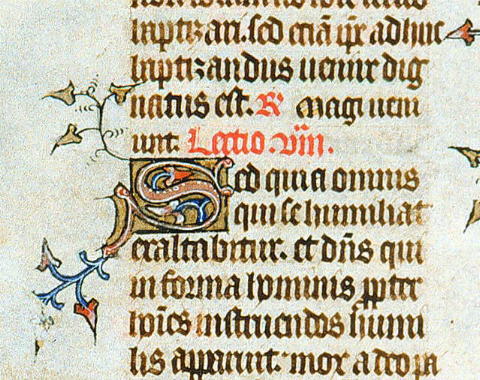 baptizari. sed etiā adhuc
baptizandus uenire dig
natus est. R̸ Magi ueni
unt. Lectio viii.
Sed quia omnis
qui se humiliat
exaltabitur. et dn̄s qui
in forma hominis ꝓpter
hoīes instruendos humi
lis apparuit: mox a deo pa